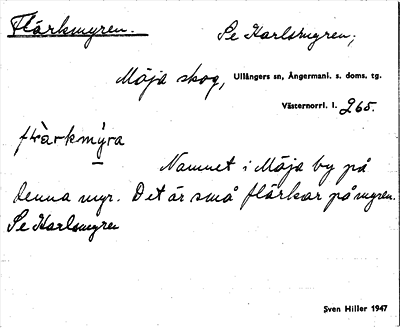 Flärkmyren. Se Karlsmyren;
Möja skog, Ullångers sn, Ångermanl. s. doms. tg.
Västernorrl. l. 265.
flàrkmýra
Namnet i Möja by på
denna myr. Det är små flärkar på myren.
Se Karlsmyren
Sven Hiller 1947